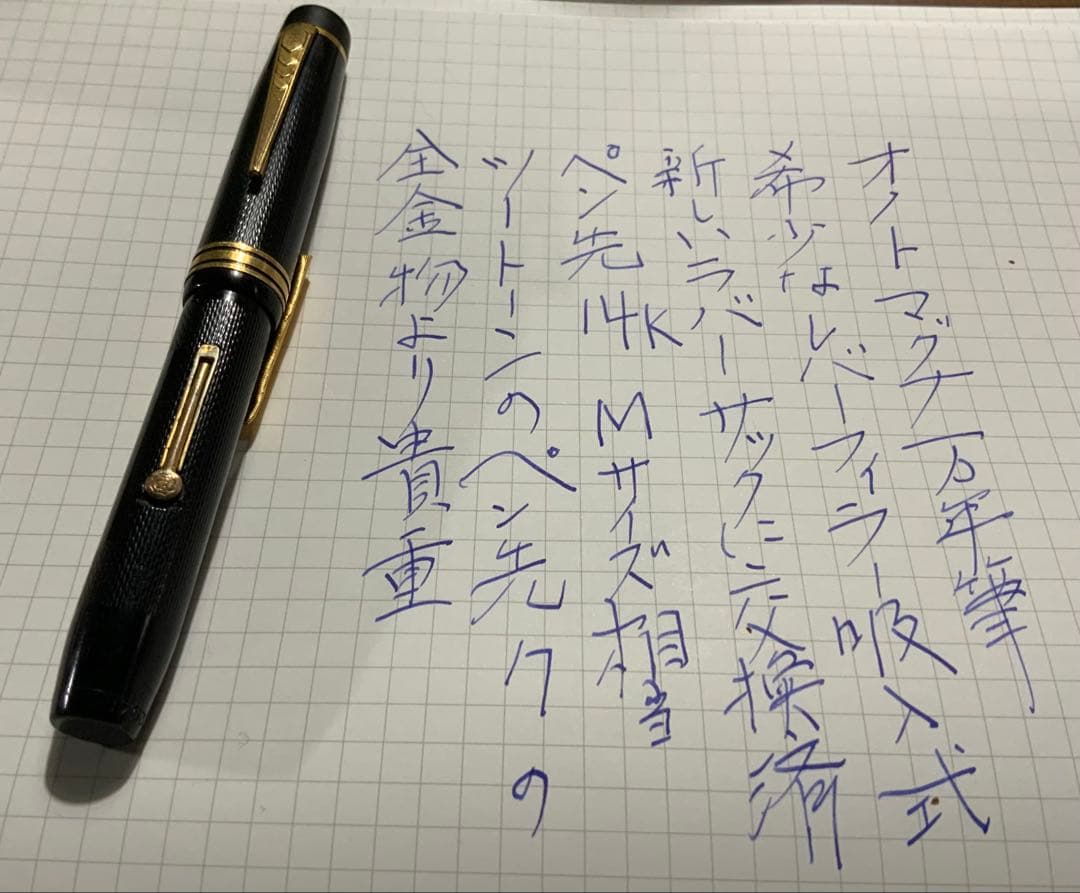 オノトマグナ万年筆
希少なレバーフィラー吸入式
新しいラバーサックに交換済
ペン先14K Mサイズ相当
ツートーンのペン先7の
全金物より貴重